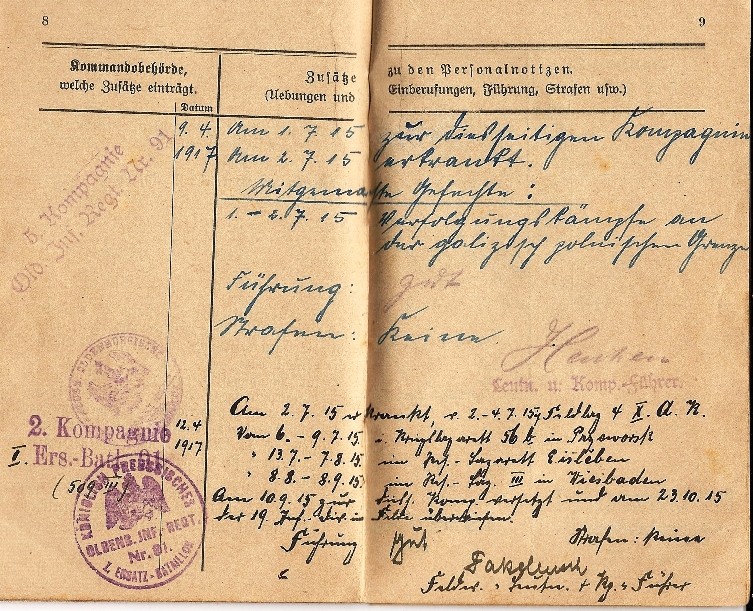 8
9
Kommandobehörde,
welche Zusätze einträgt.
Datum
Zusätze zu den Personalnotizen.
(Uebungen und Einberufungen, Führung, Strafen usw.)
9. 4. 1917
Am 1. 7. 15 zur diesseitigen Kompagnie
Am 2. 7. 15 erkrankt.
5. Kompagnie
Old. Inf. Regt. Nr. 91
Mitgemachte Gefechte:
1. - 2. 7. 15 Verfolgungskämpfe an
der galizisch polnischen Grenze
Führung: gut
Strafen: Keine
Leutn. u. Komp.-Führer.
2. Kompagnie
I. Ers.-Batl. 91
12.4 1917
Am 2. 7. 15 erkrankt, v. 2.-4. 7. 15 Feldlaz 4 X. A. K.
Vom 6. - 9.7.15 i. Kriegslazarett 56 b in Przeworsk
" 13.7 - 7.8.15 im Res.-Lazarett Eisleben
" 8.8 - 8.9.15 im Res.-Laz. III in Wiesbaden
Am 10.9.15 zur Komp versetzt und am 23.10.15
der 19 Inf. Div in Felde überwiesen.
Führung gut
Strafen: keine
Feldw. Leutn. + Kp. Führer
KÖNIGLICH PREUSSISCHES
OLDENB. INF. REGT.
Nr. 91.
I. ERSATZ-BATAILLON